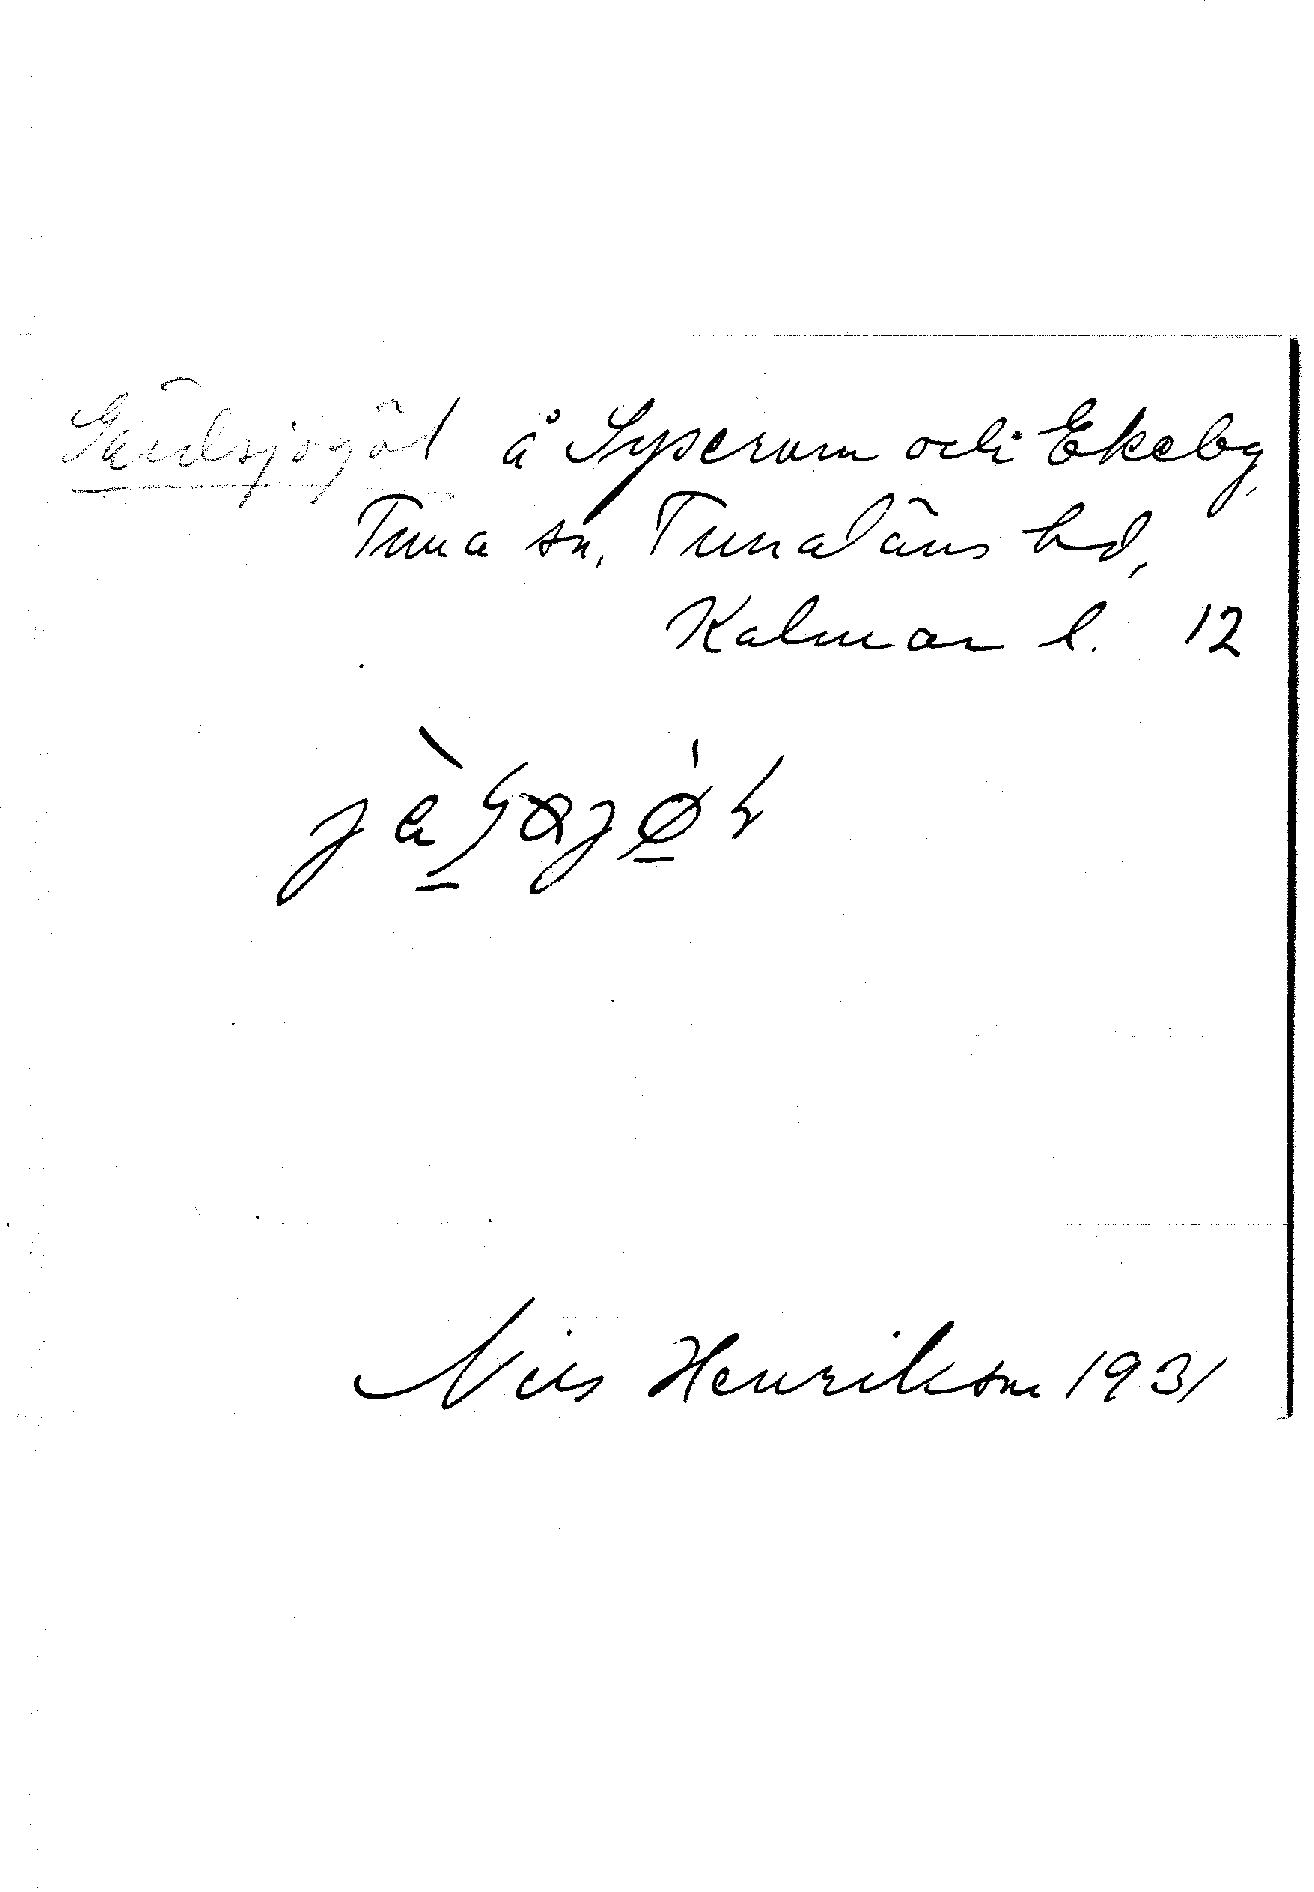 Gärdsjögöl å Syserum och Ekeby,
Tuna sn, Tunaläns hd,
Kalmar l. 12
Nils Henrikson 1931